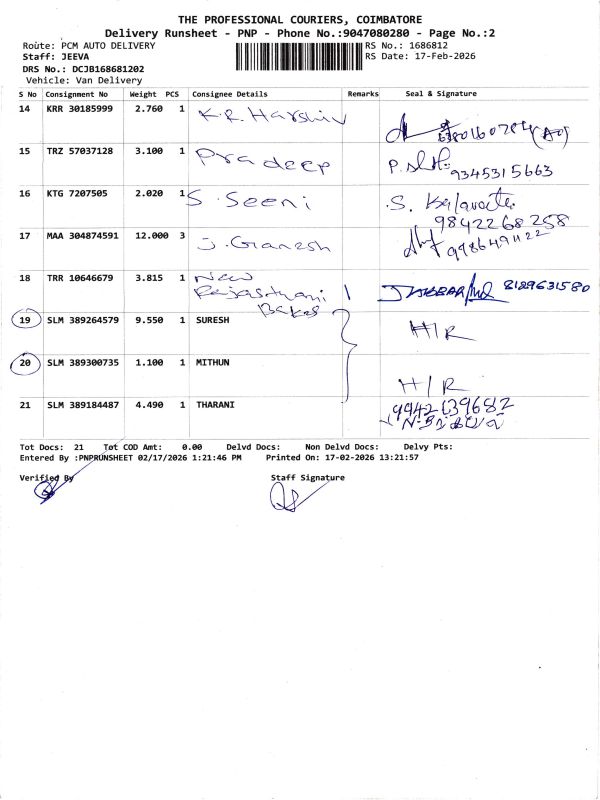 THE PROFESSIONAL COURIERS, COIMBATORE
Delivery Runsheet - PNP - Phone No.:9047080280 - Page No.:2
Route: PCM AUTO DELIVERY
RS No.: 1686812
Staff: JEEVA
RS Date: 17-Feb-2026
DRS No.: DCJB168681202
Vehicle: Van Delivery
S No Consignment No Weight PCS Consignee Details Remarks Seal & Signature
14 KRR 30185999 2.760 1 K.R. Harshiv
15 TRZ 57037128 3.100 1 Pradeep 9345315663
16 KTG 7207505 2.020 1 S. Seeni S. Kalavathi
9842268258
17 MAA 304874591 12.000 3 J. Ganesh
18 TRR 10646679 3.815 1 New Rajasthani Bakes 8129631580
19 SLM 389264579 9.550 1 SURESH H/R
20 SLM 389300735 1.100 1 MITHUN H/R
21 SLM 389184487 4.490 1 THARANI 9942639682
Tot Docs: 21 Tot COD Amt: 0.00 Delvd Docs: Non Delvd Docs: Delvy Pts:
Entered By :PNPRUNSHEET 02/17/2026 1:21:46 PM Printed On: 17-02-2026 13:21:57
Verified By Staff Signature